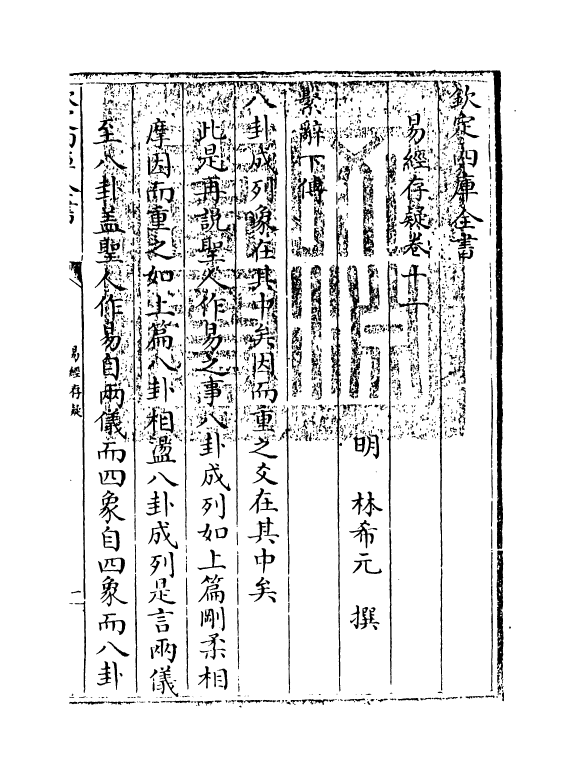 欽定四庫全書
易經存疑卷十一
明 林希元 撰
繫辭下傳
八卦成列象在其中矣因而重之爻在其中矣
此是再說聖人作易之事八卦成列如上篇剛柔相
摩因而重之如上篇八卦相盪八卦成列是言兩儀
至八卦蓋聖人作易自兩儀而四象自四象而八卦
易經存疑
一